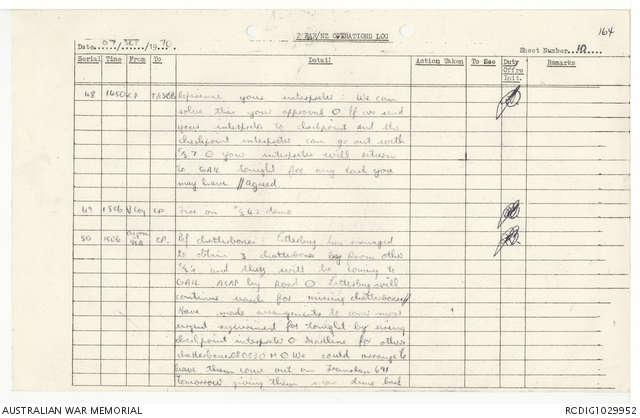 164
2 RAR/NZ OPERATIONS LOG
Date 07 / SEP / 19 70 Sheet Number 10
Serial Time From To Detail Action Taken To See Duty Offrs Init. Remarks
48 1450 CP Reference your interpreter: We can
solve this your approval O If we send
your interpreter to checkpoint and the
checkpoint interpreter can go out with
O your interpreter will return
to tonight for any task you
may have // agreed
49 Coy CP on done
50 1506 CP. Ref chatterboxes: has managed
to obtain 3 chatterboxes from other
and they will be coming to
ASAP by Road O will
continue search for missing chatterboxes //
Have made arrangements to cover most
urgent requirement for tonight by using
checkpoint interpreter O Deadline for other
chatterboxes 080530 H O We could arrange to
have them come out on 691
tomorrow giving them
AUSTRALIAN WAR MEMORIAL RCDIG1029952